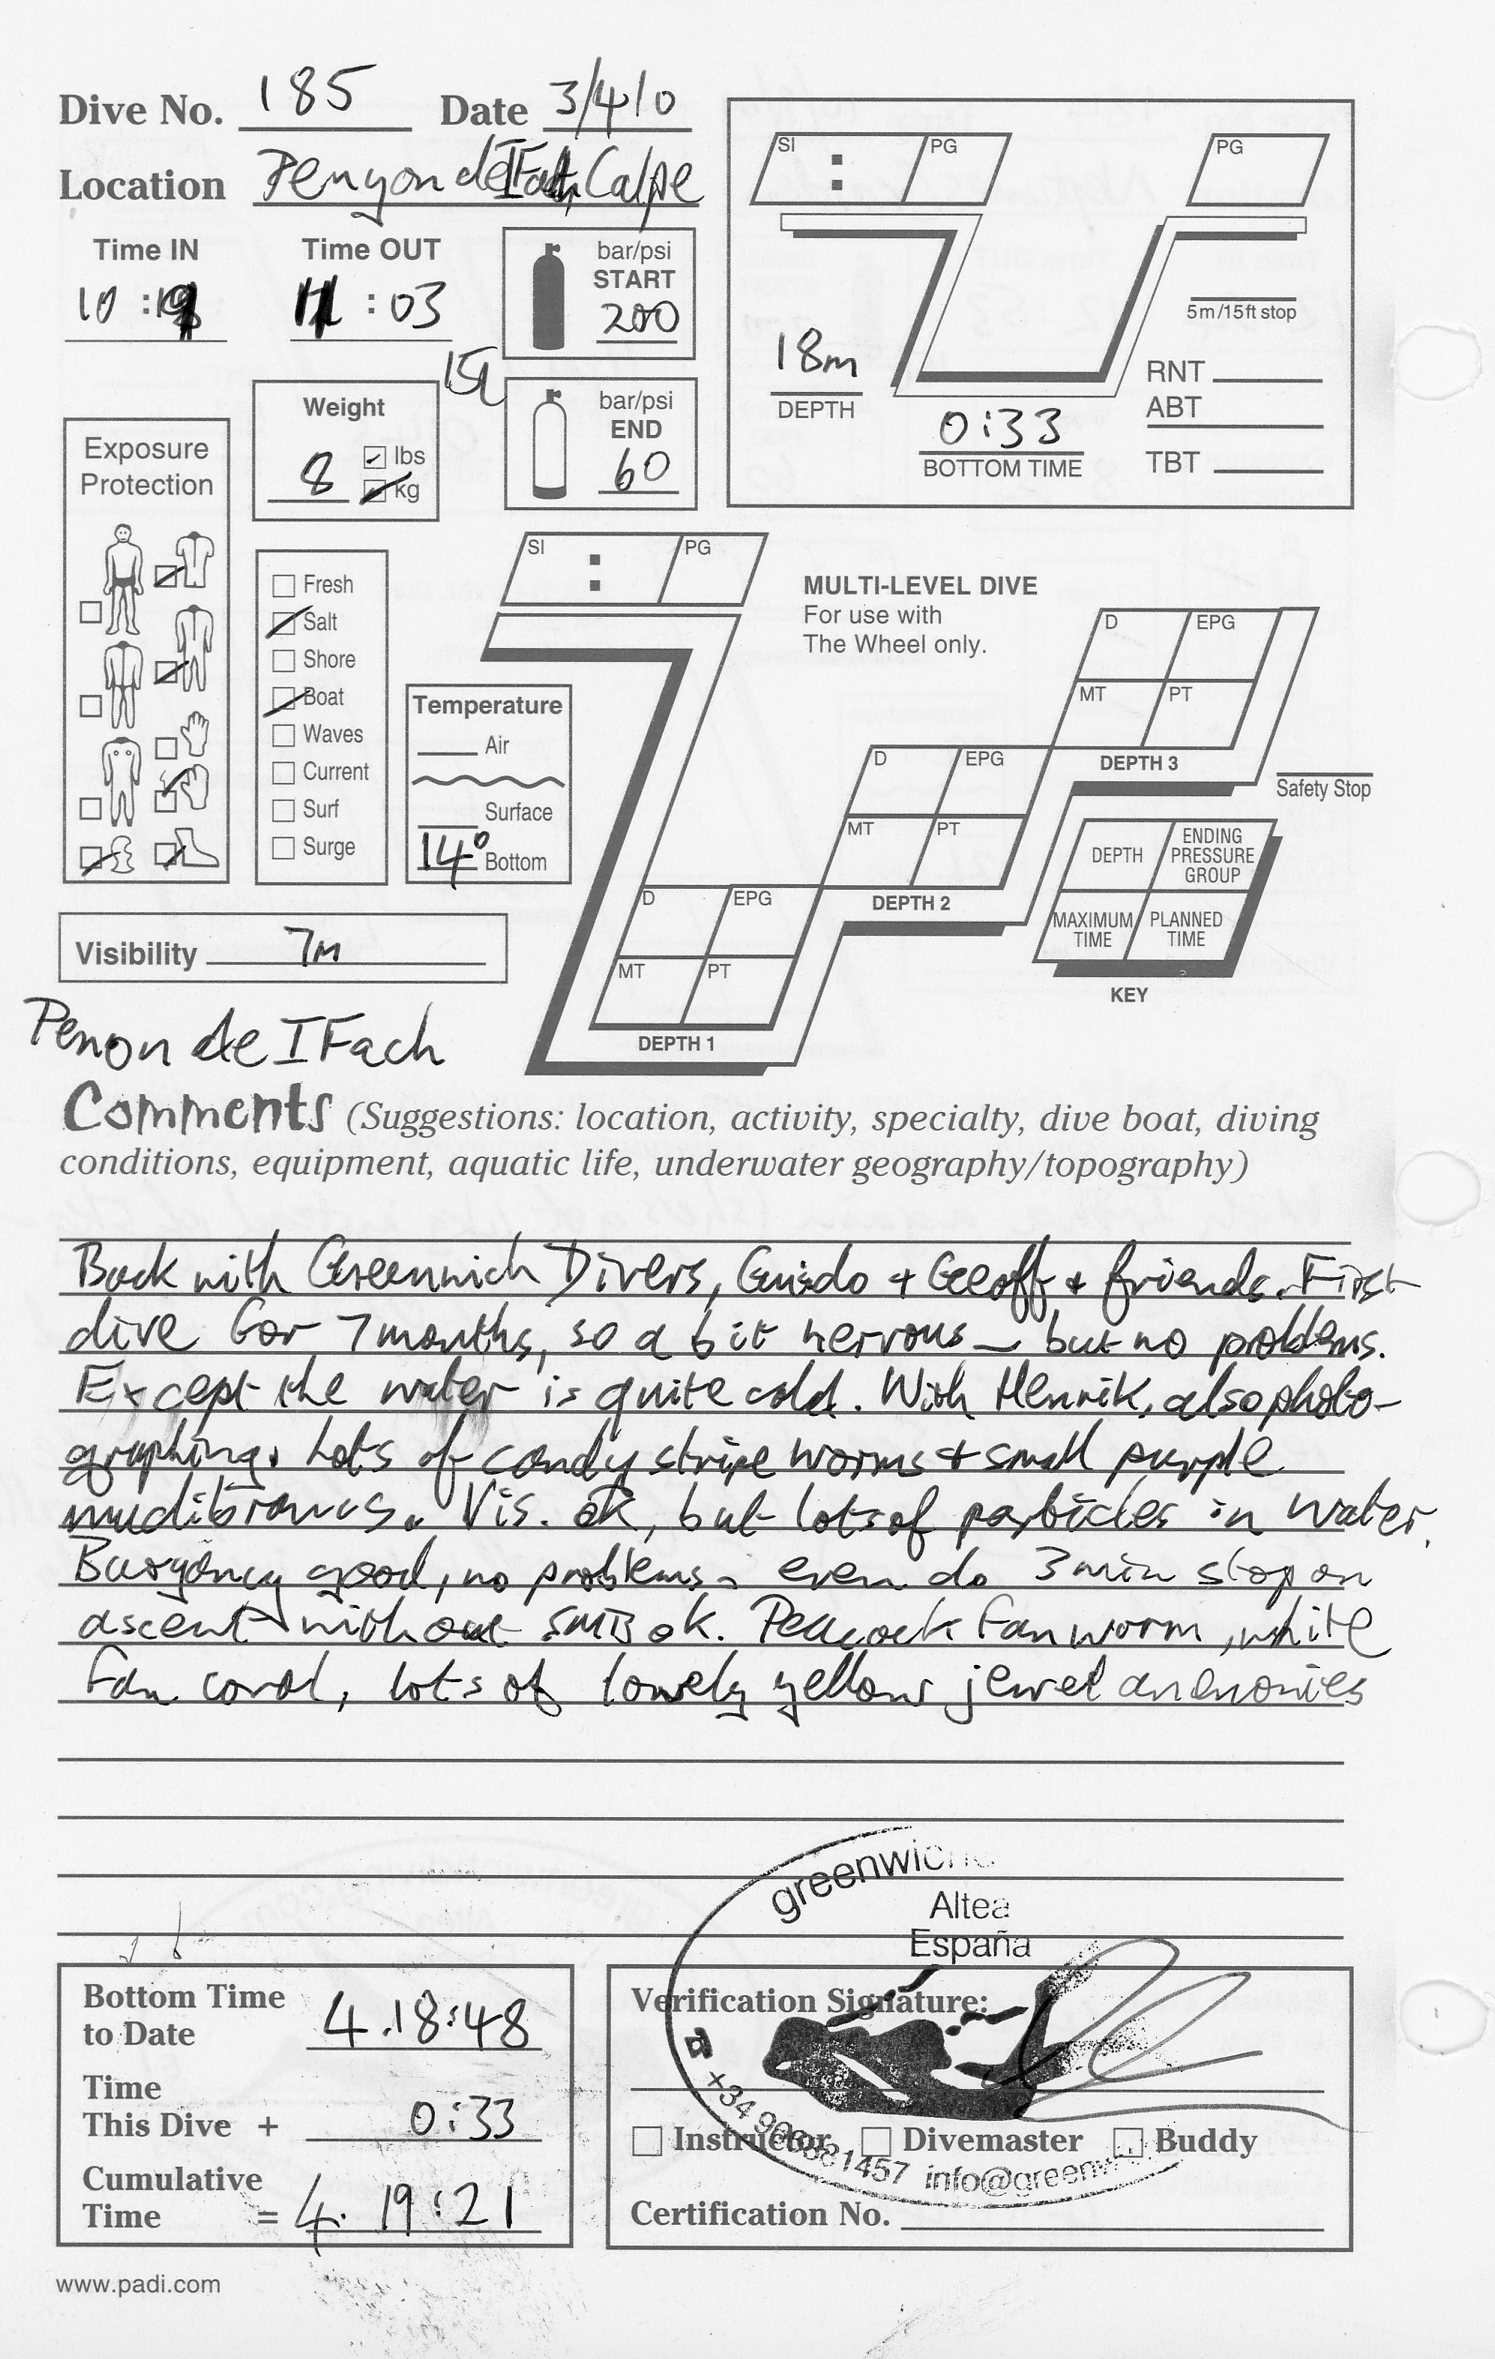 Dive No. 185 Date 3/4/10
Location Penyon de IFach, Calpe
Time IN Time OUT
10 : 11 : 03
bar/psi
START
200
15L
bar/psi
END
60
Weight
8 lbs
kg
Exposure
Protection
Fresh
Salt
Shore
Boat
Waves
Current
Surf
Surge
Temperature
Air
Surface
14° Bottom
Visibility 7m
SI : PG
PG
5m/15ft stop
18m
DEPTH
0:33
BOTTOM TIME
RNT
ABT
TBT
SI : PG
MULTI-LEVEL DIVE
For use with
The Wheel only.
D EPG
MT PT
DEPTH 3
Safety Stop
D EPG
MT PT
DEPTH 2
D EPG
MT PT
DEPTH 1
DEPTH
ENDING
PRESSURE
GROUP
MAXIMUM
TIME
PLANNED
TIME
KEY
Penon de IFach
Comments (Suggestions: location, activity, specialty, dive boat, diving
conditions, equipment, aquatic life, underwater geography/topography)
Back with Greenwich Divers, Guido + Geoff + friends. First
dive for 7 months, so a bit nervous - but no problems.
Except the water is quite cold. With Henrik, also photo-
graphing. Lots of candy stripe worms + small purple
nudibrancs. Vis. ok, but lots of particles in water.
Buoyancy good, no problems - even do 3 min stop on
ascent without SMB ok. Peacock fan worm, white
fan coral, lots of lovely yellow jewel anemonies
greenwich
Altea
España
+34 966881457 info@greenw
Bottom Time
to Date 4.18:48
Time
This Dive + 0:33
Cumulative
Time = 4. 19:21
Verification Signature:
Instructor Divemaster Buddy
Certification No.
www.padi.com